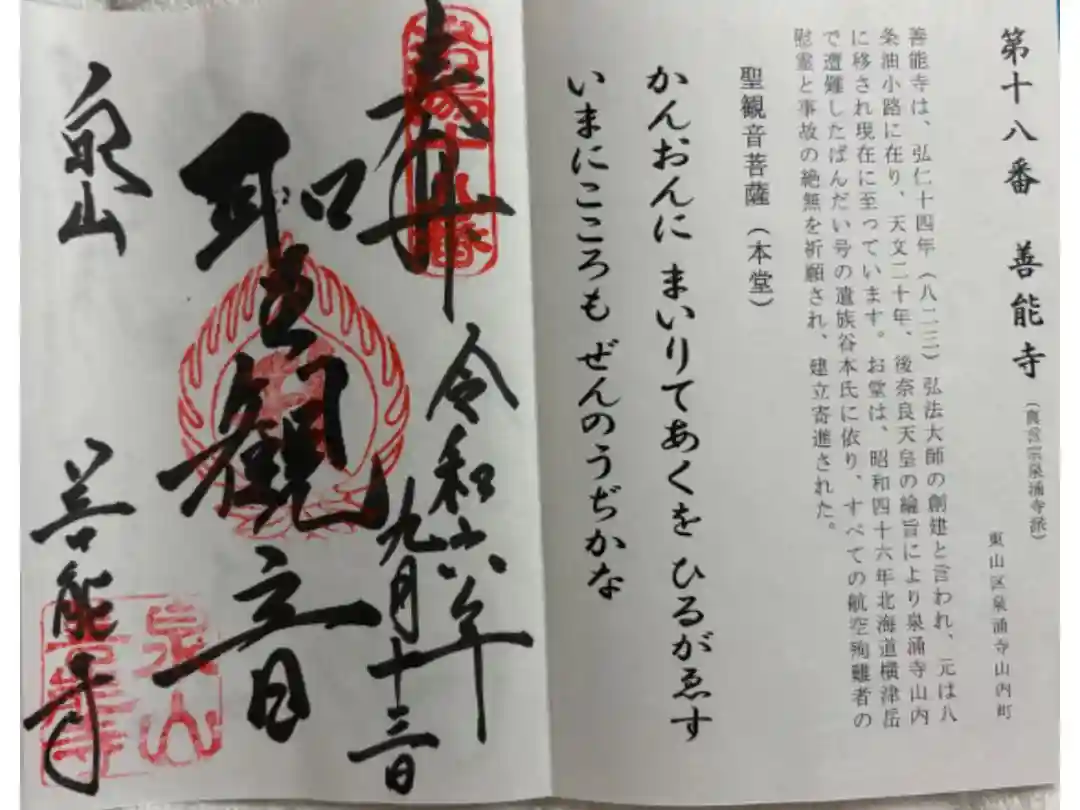 第十八番 善能寺(真言宗泉涌寺派)
東山区泉涌寺山内町
善能寺は、弘仁十四年(八二三)弘法大師の創建と言われ、元は八
条油小路に在り、天文二十年、後奈良天皇の綸旨により泉涌寺山内
に移され現在に至っています。お堂は、昭和四十六年北海道横津岳
で遭難したばんだい号の遺族谷本氏に依り、すべての航空殉難者の
慰霊と事故の絶無を祈願され、建立寄進された。
聖観音菩薩(本堂)
かんおんに まいりてあくを ひるがゑす
いまにこころも ぜんのうぢかな
奉拝
令和六年
九月十三日
聖観音
泉山
善能寺
泉山
善能寺